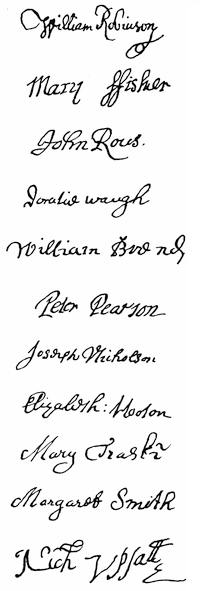 William Robinson
Mary ffisher
John Rous.
Doratie waugh
William Brend
Peter Pearson
Joseph Nicholson
Elizabeth: Hooton
Mary Trask
Margaret Smith
Nich Vpsall